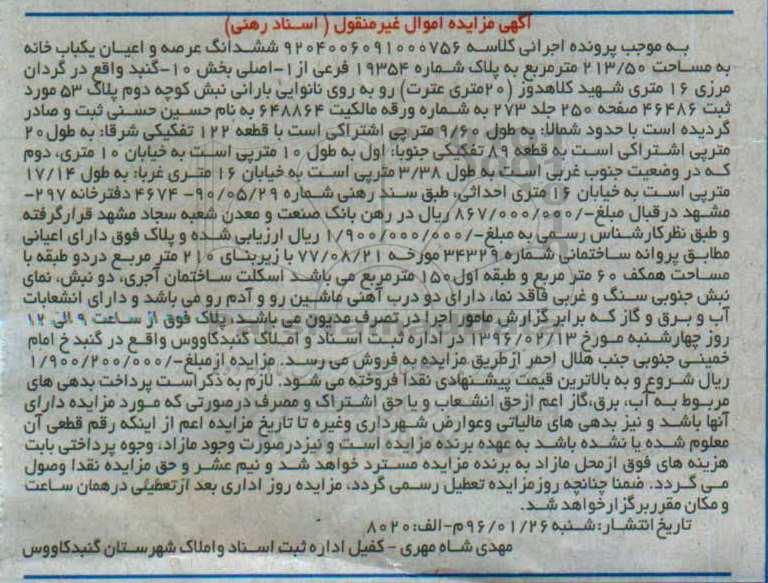 آگهی مزایده اموال غیرمنقول ( اسناد رهنی)
به موجب پرونده اجرائی کلاسه ۹۲۰۴۰۰۶۰۹۱۰۰۰۷۵۶ ششدانگ عرصه و اعیان یکباب خانه
به مساحت ۲۱۳/۵۰ مترمربع به پلاک شماره ۱۹۳۵۴ فرعی از۱-اصلی بخش ۱۰-گنبد واقع در گردان
مرزی ۱۶ متری شهید کلاهدوز (۲۰متری عترت) رو به روی نانوایی بارانی نبش کوچه دوم پلاک ۵۳ مورد
ثبت ۴۶۴۸۶ صفحه ۲۵۰ جلد ۲۷۳ به شماره ورقه مالکیت ۶۴۸۸۶۴ به نام حسین حسنی ثبت و صادر
گردیده است با حدود شمالا: به طول ۹/۶۰ متر پی اشتراکی است با قطعه ۱۲۲ تفکیکی شرقا: به طول۲۰
مترپی اشتراکی است به قطعه ۸۹ تفکیکی جنوبا: اول به طول ۱۰ مترپی است به خیابان ۱۰ متری، دوم
که در وضعیت جنوب غربی است به طول ۳/۳۸ مترپی است به خیابان ۱۶ متری غربا: به طول ۱۷/۱۴
مترپی است به خیابان ۱۶ متری احداثی، طبق سند رهنی شماره ۹۰/۰۵/۲۹- ۴۶۷۴ دفترخانه ۲۹۷-
مشهد درقبال مبلغ-/۸۶۷/۰۰۰/۰۰۰ ریال در رهن بانک صنعت و معدن شعبه سجاد مشهد قرارگرفته
و طبق نظرکارشناس رسمی به مبلغ-/۱/۹۰۰/۰۰۰/۰۰۰ ریال ارزیابی شده و پلاک فوق دارای اعیانی
مطابق پروانه ساختمانی شماره ۳۴۳۲۹ مورخه ۷۷/۰۸/۲۱ با زیربنای ۲۱۰ متر مربع دردو طبقه با
مساحت همکف ۶۰ متر مربع و طبقه اول۱۵۰ مترمربع می باشد اسکلت ساختمان آجری، دو نبش، نمای
نبش جنوبی سنگ و غربی فاقد نما، دارای دو درب آهنی ماشین رو و آدم رو می باشد و دارای انشعابات
آب و برق و گاز که برابر گزارش مامور اجرا در تصرف مدیون می باشد، پلاک فوق از ساعت ۹ الی ۱۲
روز چهارشنبه مورخ ۱۳۹۶/۰۲/۱۳ در اداره ثبت اسناد و املاک گنبدکاووس واقع در گنبد خ امام
خمینی جنوبی جنب هلال احمر ازطریق مزایده به فروش می رسد. مزایده ازمبلغ-/۱/۹۰۰/۲۰۰/۰۰۰
ریال شروع و به بالاترین قیمت پیشنهادی نقدا فروخته می شود. لازم به ذکر است پرداخت بدهی های
مربوط به آب، برق،گاز اعم ازحق انشعاب و یا حق اشتراک و مصرف درصورتی که مورد مزایده دارای
آنها باشد و نیز بدهی های مالیاتی وعوارض شهرداری وغیره تا تاریخ مزایده اعم از اینکه رقم قطعی آن
معلوم شده یا نشده باشد به عهده برنده مزایده است و نیزدرصورت وجود مازاد، وجوه پرداختی بابت
هزینه های فوق ازمحل مازاد به برنده مزایده مسترد خواهد شد و نیم عشر و حق مزایده نقدا وصول
می گردد. ضمنا چنانچه روزمزایده تعطیل رسمی گردد، مزایده روز اداری بعد ازتعطیلی درهمان ساعت
و مکان مقرربرگزارخواهد شد.
تاریخ انتشار:شنبه ۹۶/۰۱/۲۶م-الف:۸۰۲۰
مهدی شاه مهری - کفیل اداره ثبت اسناد واملاک شهرستان گنبدکاووس